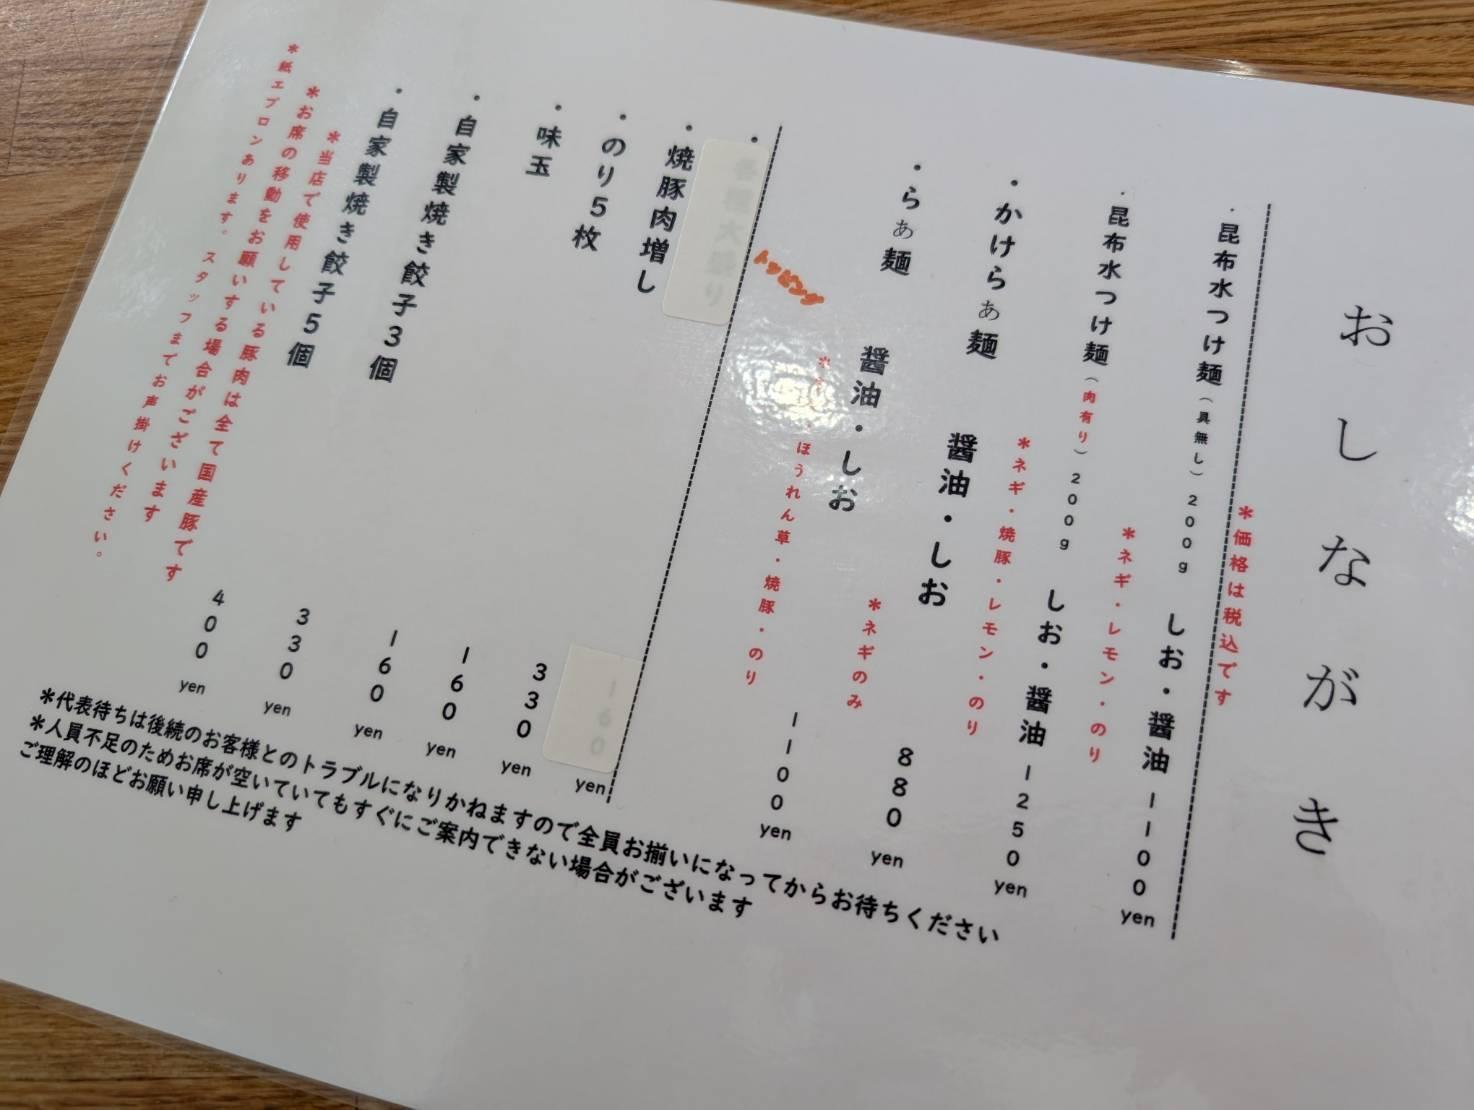 おしながき
*価格は税込です
・昆布水つけ麺（具無し）200g しお・醤油 1100yen
*ネギ・レモン・のり
・昆布水つけ麺（肉有り）200g しお・醤油 1250yen
*ネギ・焼豚・レモン・のり
・かけらぁ麺 醤油・しお 880yen
*ネギのみ
・らぁ麺 醤油・しお 1100yen
・ほうれん草・焼豚・のり
トッピング
・ yen
・焼豚肉増し 330yen
・のり5枚 160yen
・味玉 160yen
・自家製焼き餃子3個 330yen
・自家製焼き餃子5個 400yen
*当店で使用している豚肉は全て国産豚です
*お席の移動をお願いする場合がございます
*紙エプロンあります。スタッフまでお声掛けください。
*代表待ちは後続のお客様とのトラブルになりかねますので全員お揃いになってからお待ちください
*人員不足のためお席が空いていてもすぐにご案内できない場合がございます
ご理解のほどお願い申し上げます